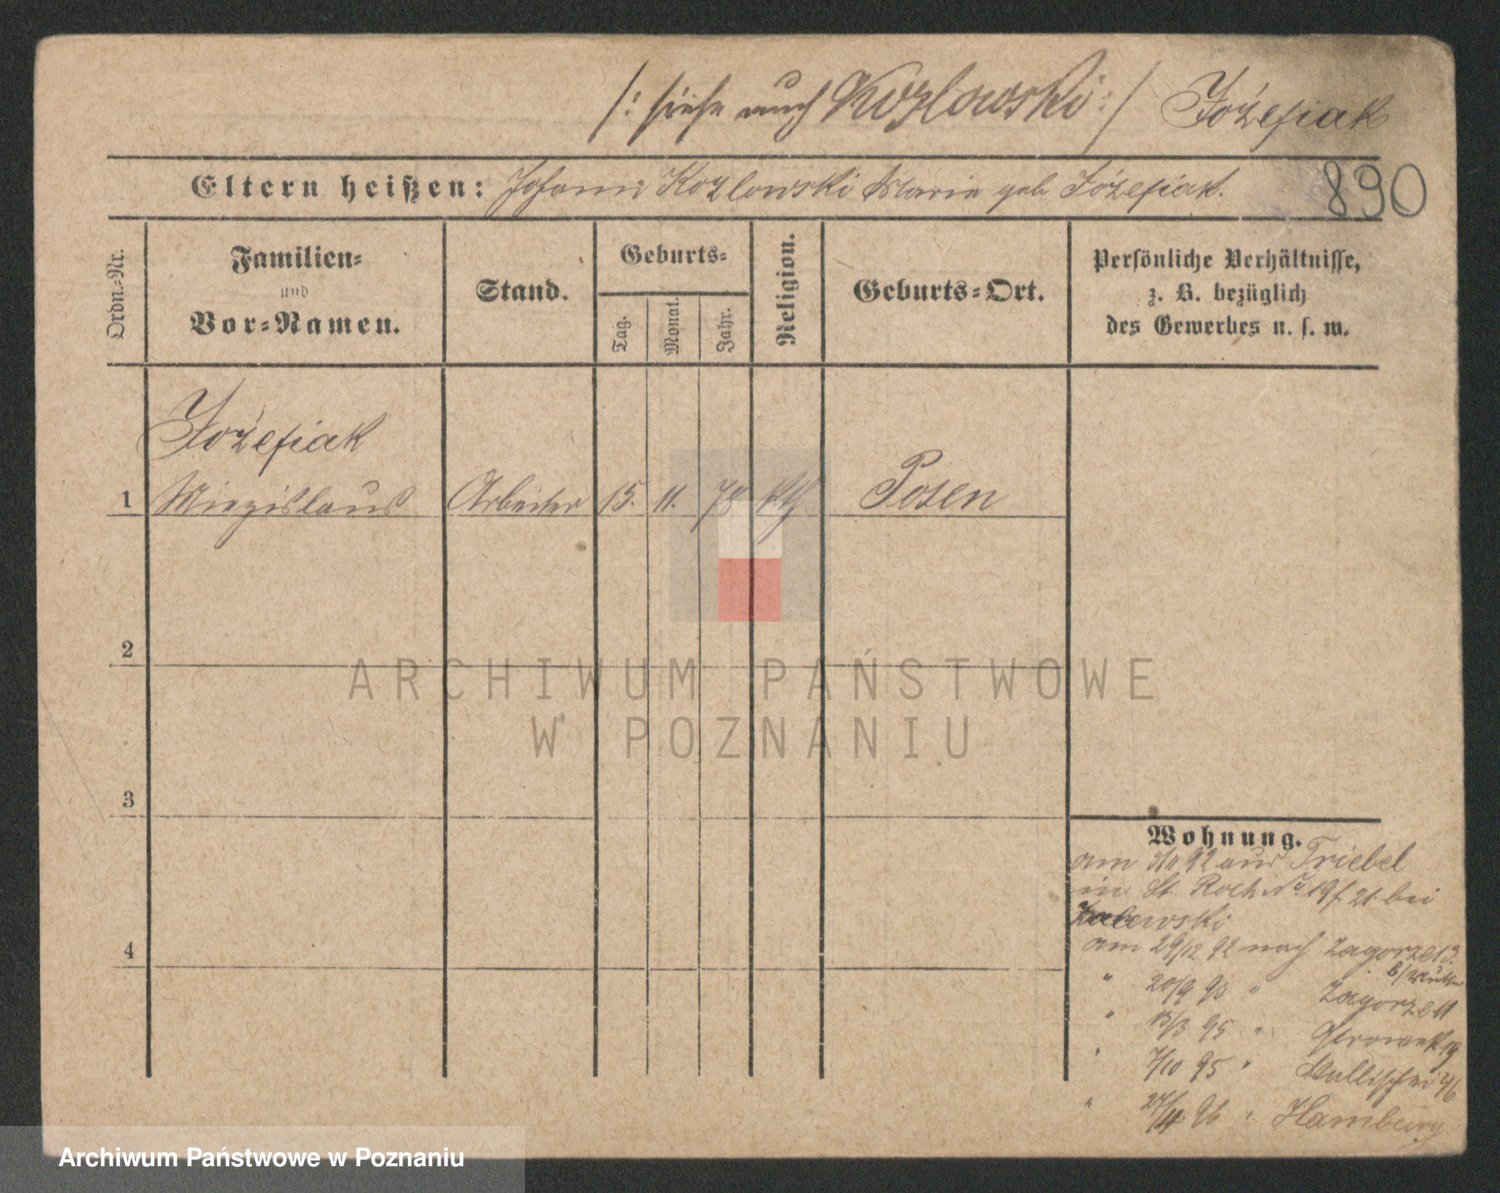 /: siehe auch Kozlowski :/ Józefiak
Eltern heißen: Johann Kozlowski Maria geb Józefiak.
890
Ordn.-Nr.
Familien-
und
Vor-Namen.
Stand.
Geburts-
Tag.
Monat.
Jahr.
Religion.
Geburts-Ort.
Persönliche Verhältnisse,
z. B. bezüglich
des Gewerbes u. s. w.
Józefiak
1 Miezislaus Arbeiter 15. 11. 78 kth Posen
2
3
4
Wohnung.
am 3/11 92 aus Triebel
in St. Roch No 19/21 bei
Zalewski
am 29/12 92 nach Zagorze 13
b/ Mutter
" 20/9 93 " Zagorze 11
" 15/3 95 " Ostrowek 19
" 7/10 95 " Wallischei 46
" 27/4 96 " Hamburg
ARCHIWUM PAŃSTWOWE
W POZNANIU
Archiwum Państwowe w Poznaniu